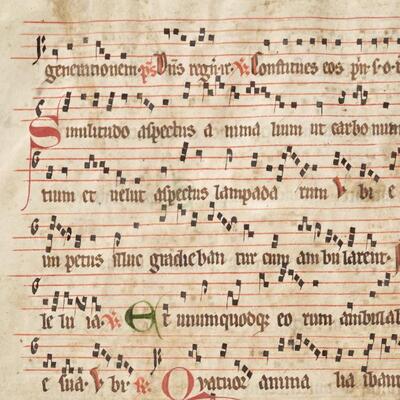 generationem. ps Dns regn̄ ir. V. Constitues eos p̄ir s. o.
Similitudo aspectus a nima lium ut carbo num
tium et uelut aspectus lampada rum V bi e
im petus illuc gradieban tur cum am bu larent.
le lu ia. V. Et unumquodqꝫ eo rum ambulab
e sua. V bi R. Quatuor anima lia iban